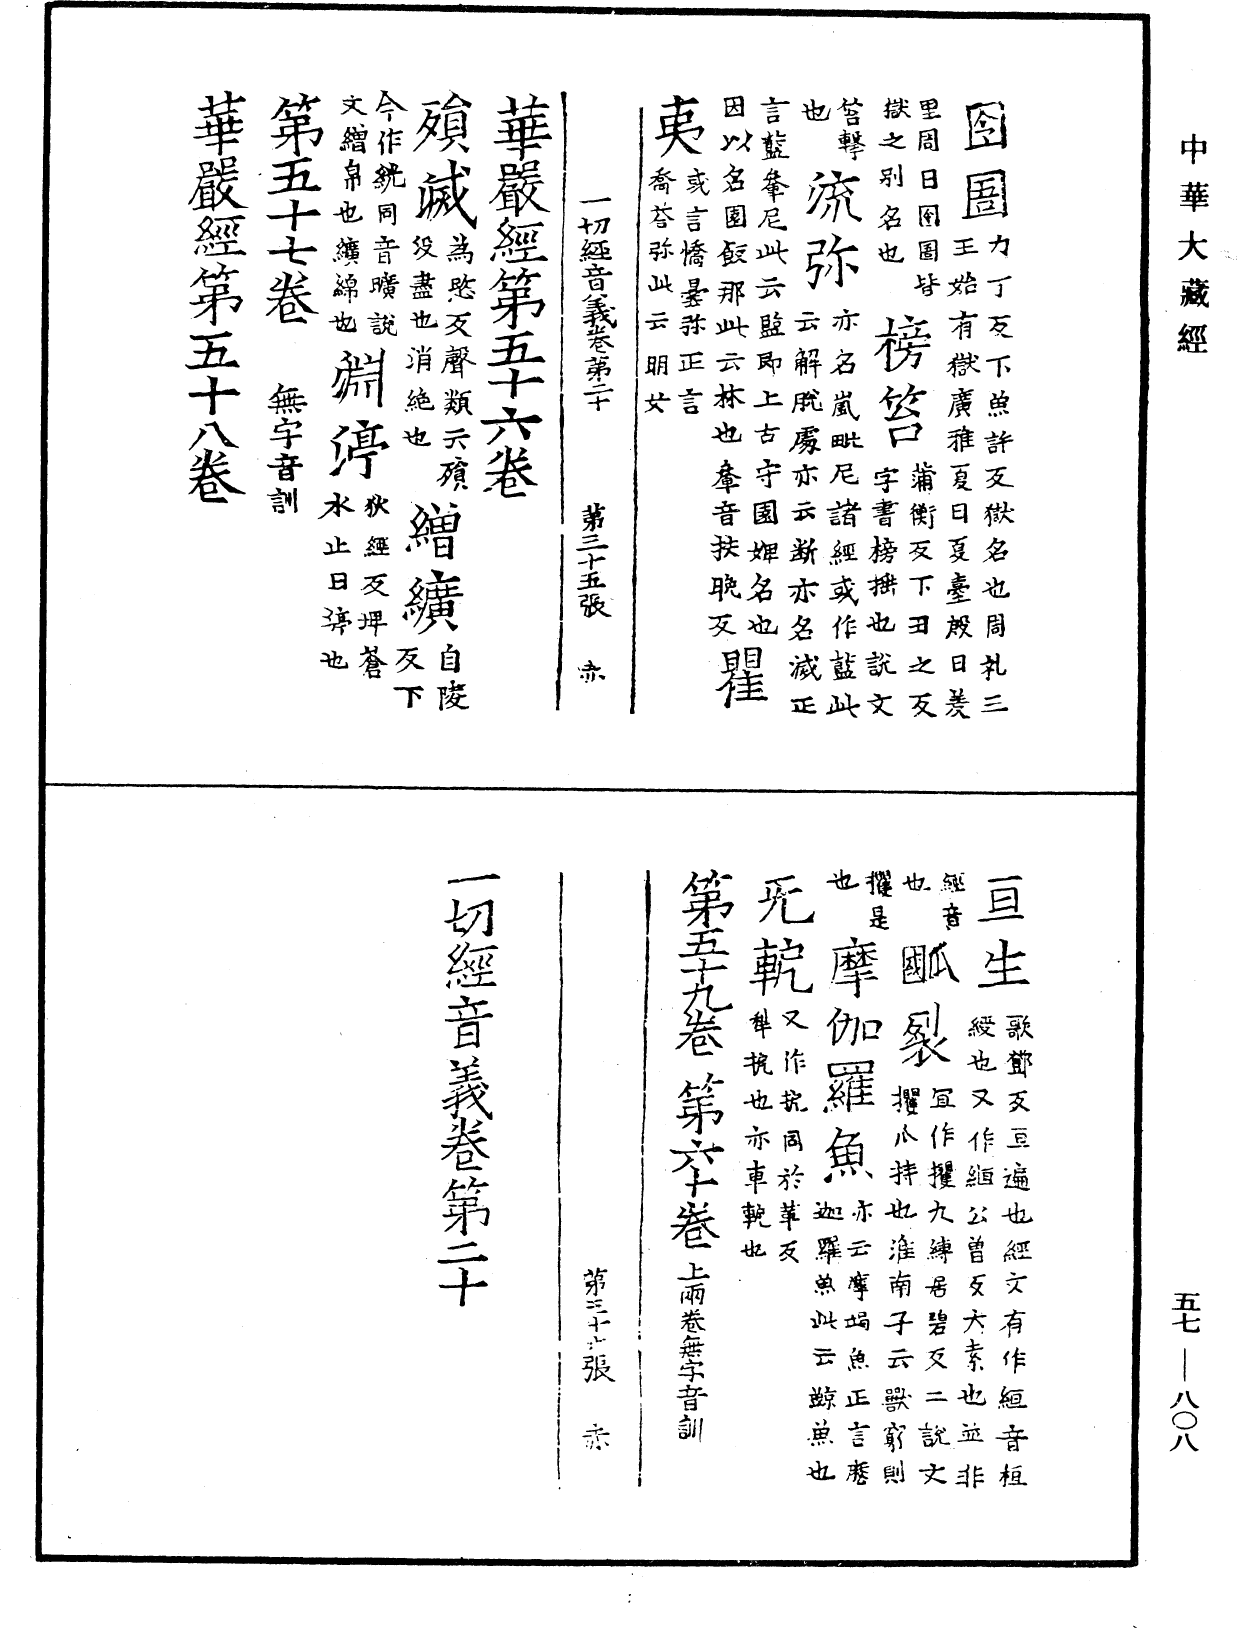 中華大藏經
囹圄 力丁反下魚許反獄名也周礼三
王始有獄廣雅夏曰夏臺殷曰羑
里周曰囹圄皆
獄之別名也
榜笞 蒲衡反下丑之反
字書榜捶也說文
笞擊
也
流弥 亦名嵐毗尼諸經或作藍此
云解脫處亦云断亦名滅正
言藍軬尼此云監即上古守園婢名也
因以名園飯那此云林也軬音扶晚反
瞿
夷 或言憍曇弥正言
喬荅弥此云明女
一切經音義卷第二十 第三十五張 亦
華嚴經第五十六卷
殞滅 為愍反聲類云殞
没盡也消絶也
繒纊 自陵
反下
今作絖同音曠說
文繒帛也纊綿也
淵渟 狄經反埤蒼
水止曰渟也
第五十七卷 無字音訓
華嚴經第五十八卷
亘生 歌鄧反亘遍也經文有作絙音桓
綬也又作緪公曾反大索也並非
經音
也
𤬏裂 宜作攫九縛居碧反二說文
攫爪持也淮南子云獸窮則
攫是
也
摩伽羅魚 亦云摩竭魚正言麽
迦羅魚此云鯨魚也
旡軶 又作扼同於革反
犁扼也亦車軶也
第五十九卷 第六十卷 上兩卷無字音訓
第三十六張 亦
一切經音義卷第二十
五七—八〇八